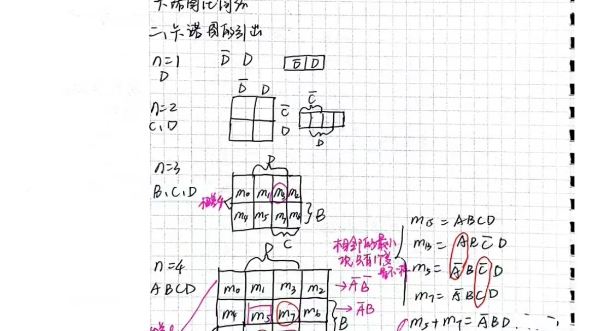 二、卡诺图的引出
n=1
D
D̅ D
D̅ D
n=2
C,D
D̅ D
C̅
D
C̅
D
n=3
B,C,D
D
m₀ m₁ m₃ m₂
m₄ m₅ m₇ m₆
B
C
n=4
ABCD
D
m₀ m₁ m₃ m₂
m₄ m₅ m₇ m₆
B
→A̅B̅
→A̅B
相邻的最小
m₁₅=ABCD
m₁₃=ABC̅D
m₅=A̅BC̅D
m₇=A̅BCD
m₅+m₇=A̅BD